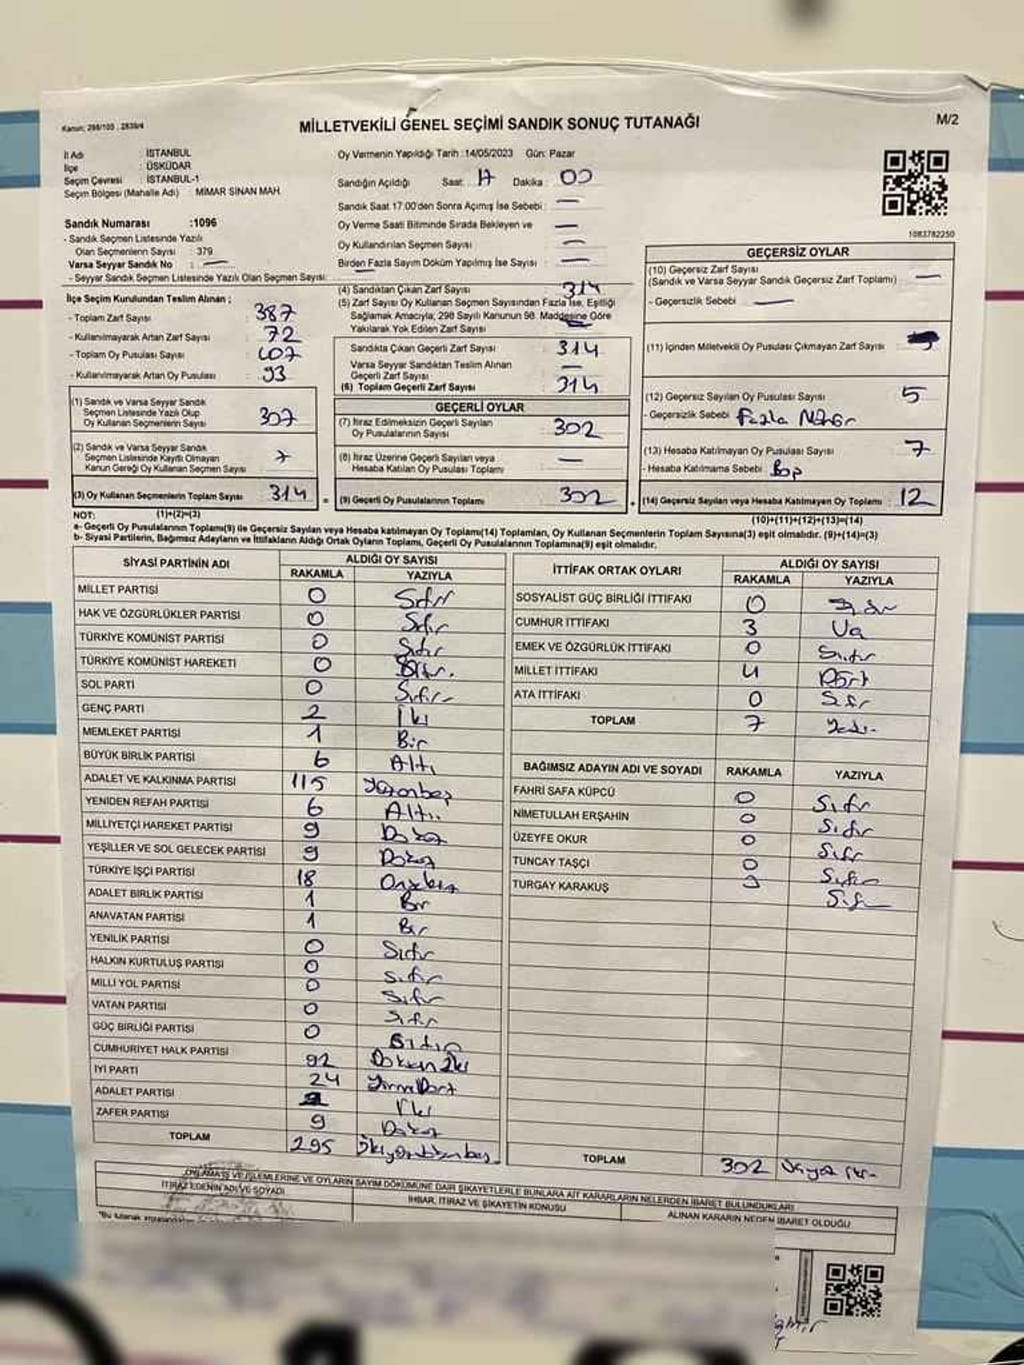 Kanun: 298/105 . 2839/4
MİLLETVEKİLİ GENEL SEÇİMİ SANDIK SONUÇ TUTANAĞI
M/2
İl Adı : İSTANBUL
İlçe : ÜSKÜDAR
Seçim Çevresi : İSTANBUL-1
Seçim Bölgesi (Mahalle Adı) : MİMAR SİNAN MAH.
Sandık Numarası :1096
- Sandık Seçmen Listesinde Yazılı
Olan Seçmenlerin Sayısı : 379
Varsa Seyyar Sandık No : —
- Seyyar Sandık Seçmen Listesinde Yazılı Olan Seçmen Sayısı: —
Oy Vermenin Yapıldığı Tarih :14/05/2023 Gün: Pazar
Sandığın Açıldığı Saat: 17 Dakika : 00
Sandık Saat 17:00'den Sonra Açılmış İse Sebebi : —
Oy Verme Saati Bitiminde Sırada Bekleyen ve —
Oy Kullandırılan Seçmen Sayısı : —
Birden Fazla Sayım Döküm Yapılmış İse Sayısı : —
1083782250
İlçe Seçim Kurulundan Teslim Alınan ;
- Toplam Zarf Sayısı : 387
- Kullanılmayarak Artan Zarf Sayısı : 72
- Toplam Oy Pusulası Sayısı : 407
- Kullanılmayarak Artan Oy Pusulası : 93
(1) Sandık ve Varsa Seyyar Sandık
Seçmen Listesinde Yazılı Olup
Oy Kullanan Seçmenlerin Sayısı : 307
(2) Sandık ve Varsa Seyyar Sandık
Seçmen Listesinde Kayıtlı Olmayan
Kanun Gereği Oy Kullanan Seçmen Sayısı : 7
(3) Oy Kullanan Seçmenlerin Toplam Sayısı : 314 =
(4) Sandıktan Çıkan Zarf Sayısı : 314
(5) Zarf Sayısı Oy Kullanan Seçmen Sayısından Fazla İse, Eşitliği
Sağlamak Amacıyla; 298 Sayılı Kanunun 98. Maddesine Göre
Yakılarak Yok Edilen Zarf Sayısı :
Sandıkta Çıkan Geçerli Zarf Sayısı : 314
Varsa Seyyar Sandıktan Teslim Alınan
Geçerli Zarf Sayısı : —
(6) Toplam Geçerli Zarf Sayısı : 314
GEÇERLİ OYLAR
(7) İtiraz Edilmeksizin Geçerli Sayılan
Oy Pusulalarının Sayısı : 302
(8) İtiraz Üzerine Geçerli Sayılan veya
Hesaba Katılan Oy Pusulası Toplamı : —
(9) Geçerli Oy Pusulalarının Toplamı : 302 +
GEÇERSİZ OYLAR
(10) Geçersiz Zarf Sayısı
(Sandık ve Varsa Seyyar Sandık Geçersiz Zarf Toplamı) : —
- Geçersizlik Sebebi : —
(11) İçinden Milletvekili Oy Pusulası Çıkmayan Zarf Sayısı :
(12) Geçersiz Sayılan Oy Pusulası Sayısı : 5
- Geçersizlik Sebebi : Fazla Mühür
(13) Hesaba Katılmayan Oy Pusulası Sayısı : 7
- Hesaba Katılmama Sebebi : Boş
(14) Geçersiz Sayılan veya Hesaba Katılmayan Oy Toplamı : 12
NOT: (1)+(2)=(3)
(10)+(11)+(12)+(13)=(14)
a- Geçerli Oy Pusulalarının Toplamı(9) ile Geçersiz Sayılan veya Hesaba katılmayan Oy Toplamı(14) Toplamları, Oy Kullanan Seçmenlerin Toplam Sayısına(3) eşit olmalıdır. (9)+(14)=(3)
b- Siyasi Partilerin, Bağımsız Adayların ve İttifakların Aldığı Ortak Oyların Toplamı, Geçerli Oy Pusulalarının Toplamına(9) eşit olmalıdır.
SİYASİ PARTİNİN ADI ALDIĞI OY SAYISI
RAKAMLA YAZIYLA
MİLLET PARTİSİ 0 Sıfır
HAK VE ÖZGÜRLÜKLER PARTİSİ 0 Sıfır
TÜRKİYE KOMÜNİST PARTİSİ 0 Sıfır
TÜRKİYE KOMÜNİST HAREKETİ 0 Sıfır
SOL PARTİ 0 Sıfır
GENÇ PARTİ 2 İki
MEMLEKET PARTİSİ 1 Bir
BÜYÜK BİRLİK PARTİSİ 6 Altı
ADALET VE KALKINMA PARTİSİ 115 Yüzonbeş
YENİDEN REFAH PARTİSİ 6 Altı
MİLLİYETÇİ HAREKET PARTİSİ 9 Dokuz
YEŞİLLER VE SOL GELECEK PARTİSİ 9 Dokuz
TÜRKİYE İŞÇİ PARTİSİ 18 Onsekiz
ADALET BİRLİK PARTİSİ 1 Bir
ANAVATAN PARTİSİ 1 Bir
YENİLİK PARTİSİ 0 Sıfır
HALKIN KURTULUŞ PARTİSİ 0 Sıfır
MİLLİ YOL PARTİSİ 0 Sıfır
VATAN PARTİSİ 0 Sıfır
GÜÇ BİRLİĞİ PARTİSİ 0 Sıfır
CUMHURİYET HALK PARTİSİ 92 Doksan İki
İYİ PARTİ 24 Yirmi Dört
ADALET PARTİSİ 2 İki
ZAFER PARTİSİ 9 Dokuz
TOPLAM 295 İkiyüzdoksanbeş
İTTİFAK ORTAK OYLARI ALDIĞI OY SAYISI
RAKAMLA YAZIYLA
SOSYALİST GÜÇ BİRLİĞİ İTTİFAKI 0 Sıfır
CUMHUR İTTİFAKI 3 Üç
EMEK VE ÖZGÜRLÜK İTTİFAKI 0 Sıfır
MİLLET İTTİFAKI 4 Dört
ATA İTTİFAKI 0 Sıfır
TOPLAM 7 Yedi
BAĞIMSIZ ADAYIN ADI VE SOYADI RAKAMLA YAZIYLA
FAHRİ SAFA KÜPCÜ 0 Sıfır
NİMETULLAH ERŞAHİN 0 Sıfır
ÜZEYFE OKUR 0 Sıfır
TUNCAY TAŞÇI 0 Sıfır
TURGAY KARAKUŞ 0 Sıfır
TOPLAM 302 Üçyüz iki
OYLAMA İŞ VE İŞLEMLERİNE VE OYLARIN SAYIM DÖKÜMÜNE DAİR ŞİKAYETLERLE BUNLARA AİT KARARLARIN NELERDEN İBARET BULUNDUKLARI
İTİRAZ EDENİN ADI VE SOYADI İHBAR, İTİRAZ VE ŞİKAYETİN KONUSU ALINAN KARARIN NEDEN İBARET OLDUĞU
"Bu tutanak